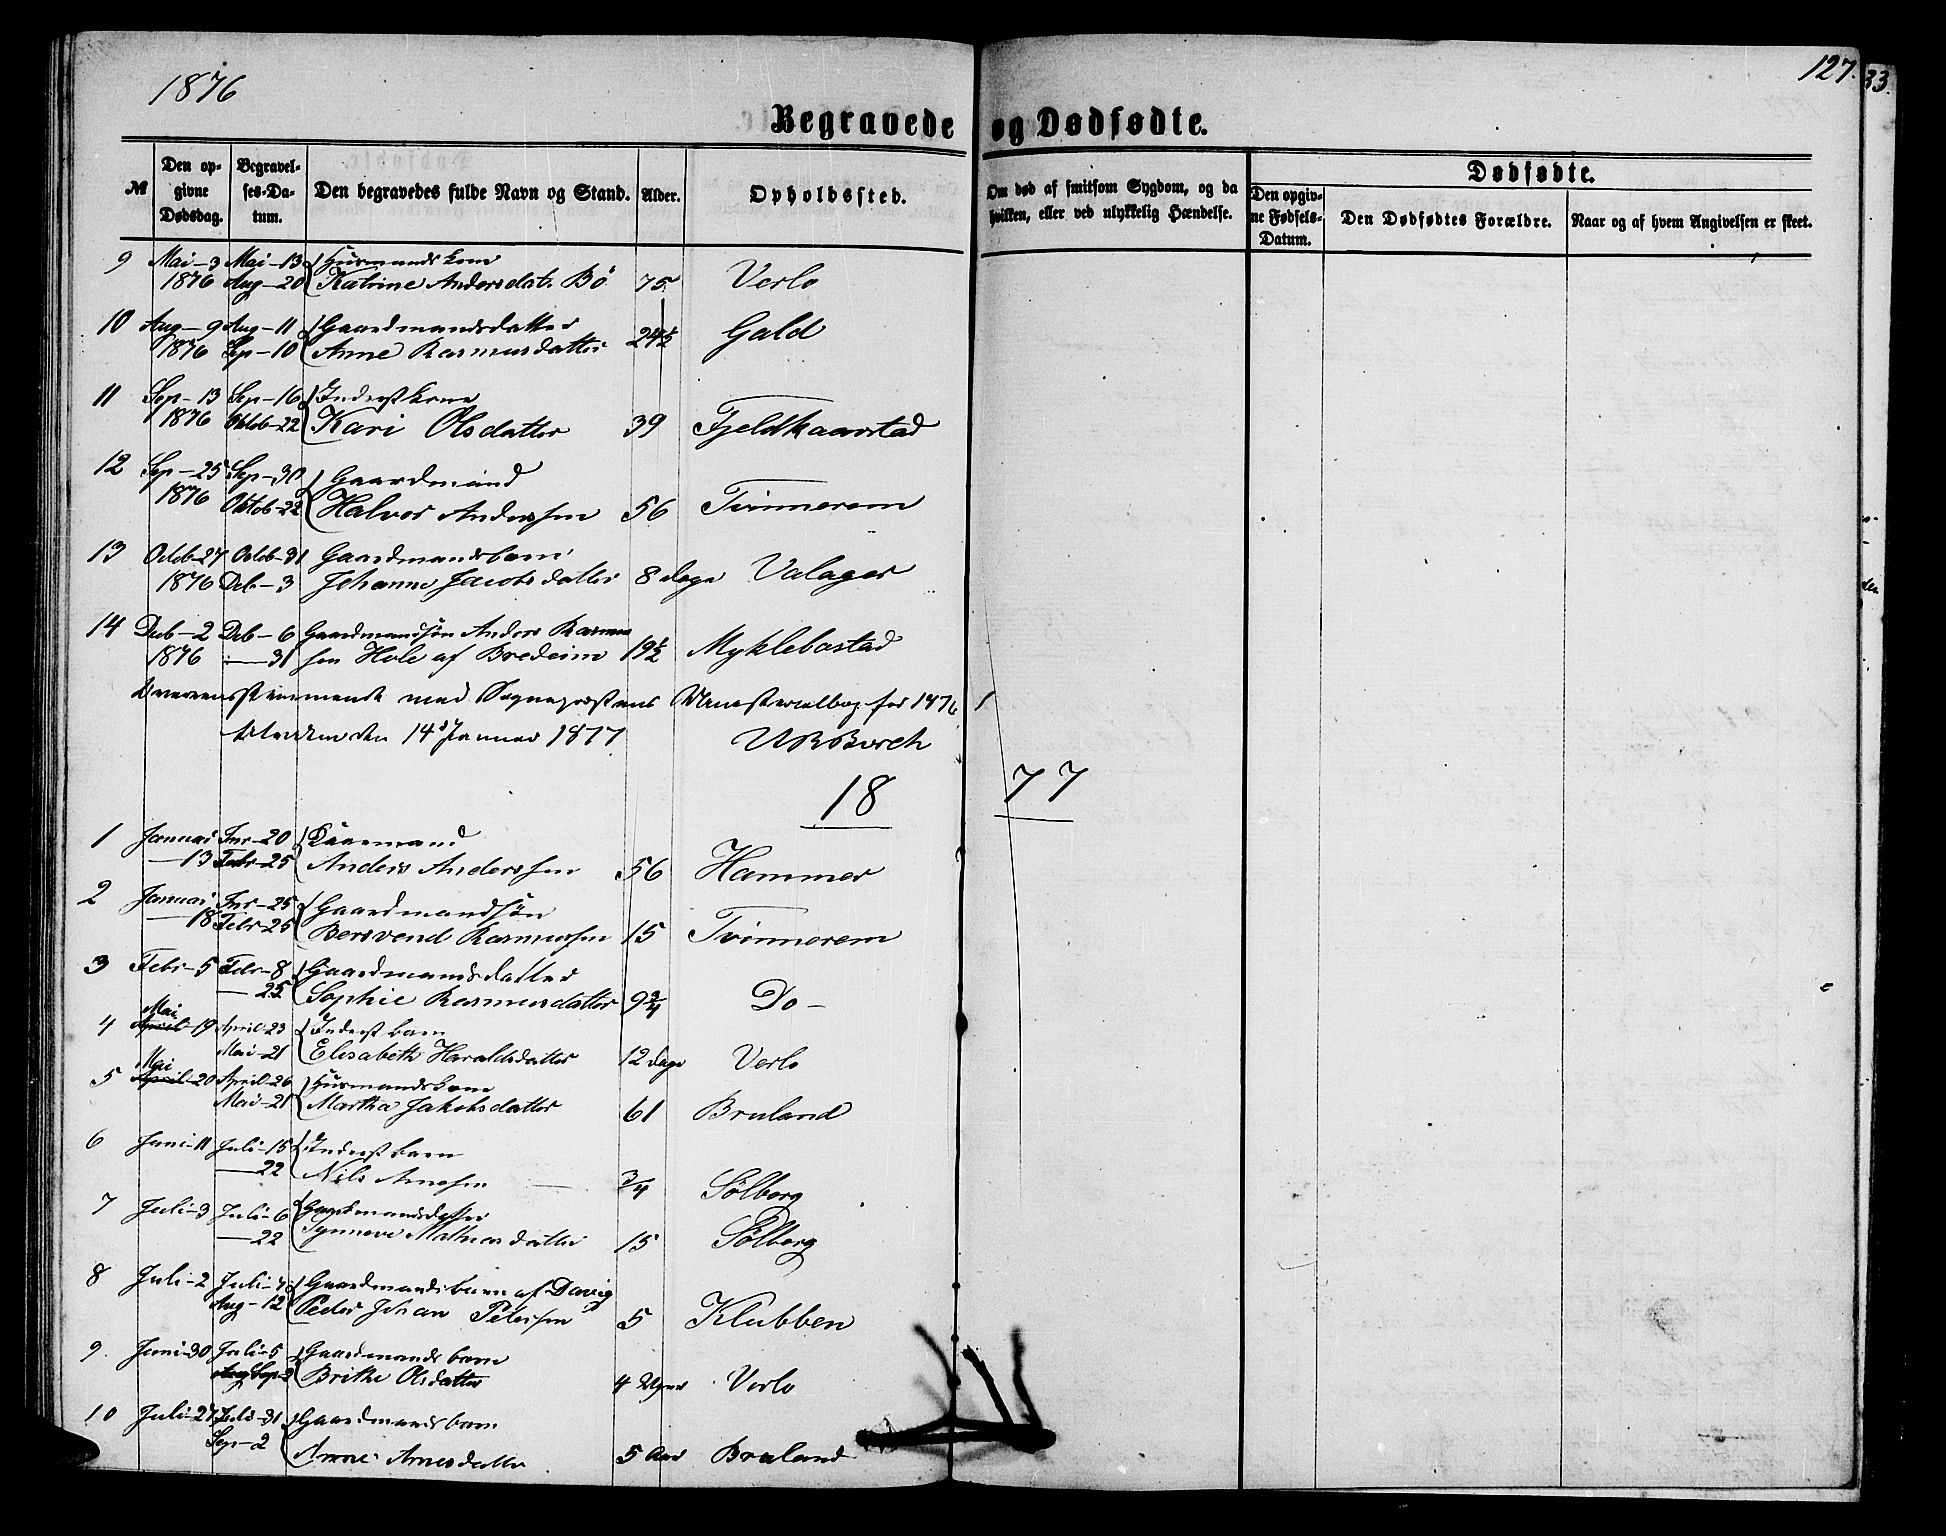 1876
127.
33.
Begravede og Dødfødte.
№ Den opgivne Dødsdag. Begravelses-Datum. Den begravedes fulde Navn og Stand. Alder. Opholdssted. Om død af smitsom Sygdom, og da hvilken, eller ved ulykkelig Hændelse. Dødfødte. Den opgivne Fødsels-Datum. Den Dødfødtes Forældre. Naar og af hvem Angivelsen er skeet.
9 Mai-3 Mai-13 Huusmandskone
1876 Aug-20 Katrine Andersdatr Bö 75 Verlo
10 Aug-9 Aug-11 Gaardmandsdatter
1876 Sep-10 Anne Rasmusdatter 24½ Gald
11 Sep-13 Sep-16 Inderstkone
1876 Oktob-22 Kari Olsdatter 39 Fjeldkaarstad
12 Sep-25 Sep-30 Gaardmand
1876 Oktob-22 Halvor Anderssen 56 Tvinnerem
13 Octob-27 Octob-31 Gaardmandsbarn
1876 Deb-3 Johanne Jacobsdatter 8 dage Valager
14 Deb-2 Deb-6 Gaardmandsön Anders Rasmus
1876 —31 sen Hole af Bredeim 19½ Myklebostad
Overensstemmende med Sognepræstens Ministerialbog for 1876
den 14d Januar 1877 Borch
18 77
1 Januar Jnr-20
—13 Febr-25 Anders Anderssen 56 Hammer
2 Januar Jnr-25 Gaardmandsön
—18 Febr-25 Bersvend Rasmussen 15 Tvinnerem
3 Febr-5 Febr-8 Gaardmandsdatter
—25 Sophie Rasmusdatter 9¾ Do-
Mai
4 April-19 April-23 Inderstbarn
Mai-21 Elisabeth Haraldsdatter 12 dage Verlo
Mai
5 April-20 April-26 Huusmandskone
Mai-21 Martha Jakobsdatter 61 Bruland
6 Juni-11 Juli-15 Inderstbarn
—22 Nils Arnesen ¾ Sölberg
7 Juli-3 Juli-6 Gaardmandsdatter
—22 Synneve Mathiasdatter 15 Sölberg
8 Juli-2 Juli-7 Gaardmandsbarn af Davig
Aug-12 Peder Johan Petersen 5 Klubben
9. Juni-30 Juli-5 Gaardmandsbarn
Sep-2 Brithe Olsdatter 4 Uger Verlo
10 Juli-27 Juli-31 Gaardmandsbarn
Sep-2 Anne Arnesdatter 5 Aar Bruland